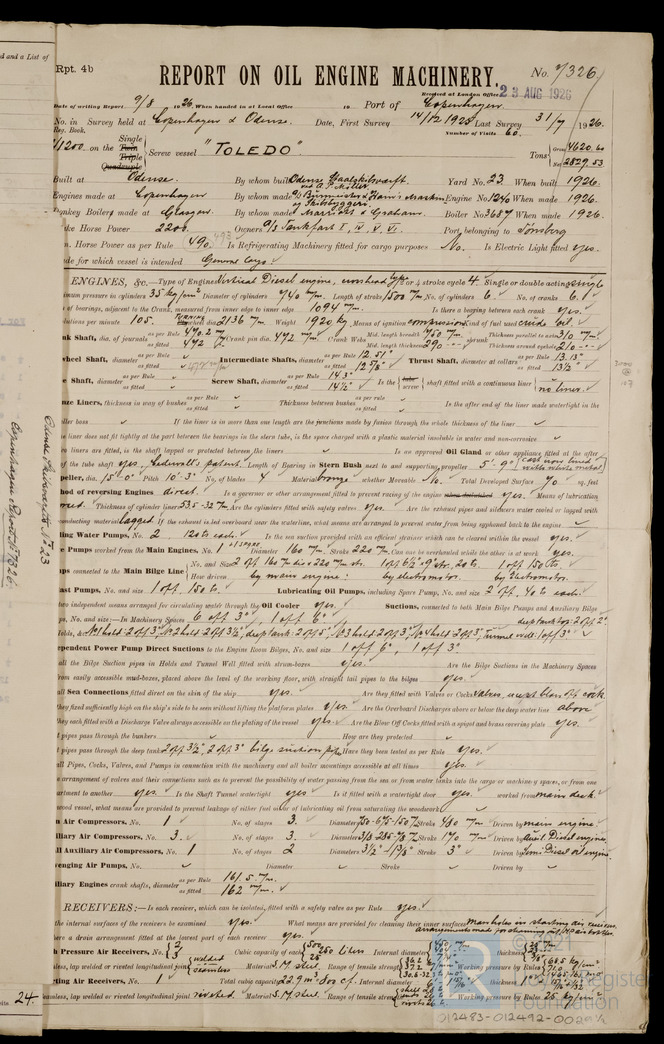 d and a List of
Rpt. 4b
REPORT ON OIL ENGINE MACHINERY.
No. 7326
Received at London Office 23 AUG 1926
Date of writing Report 9/8 1926 When handed in at Local Office 19 Port of Copenhagen
No. in Survey held at Copenhagen & Odense. Date, First Survey 14/12 1925 Last Survey 31/7 1926.
Reg. Book. Number of Visits 60.
on the Single Twin Triple Quadruple Screw vessel "TOLEDO" Tons Gross 4620.60 Net 2829.53
Built at Odense. By whom built Odense Staalskibsværft. Yard No. 23. When built 1926.
Engines made at Copenhagen By whom made Engine No. 1246 When made 1926.
Donkey Boilers made at Glasgow. By whom made Boiler No. 3687 When made 1926.
Brake Horse Power 2200. Owners Port belonging to Tönsberg
Nom. Horse Power as per Rule 490. Is Refrigerating Machinery fitted for cargo purposes No. Is Electric Light fitted Yes.
Trade for which vessel is intended General Cargo.
ENGINES, &c.—Type of Engine Vertical Diesel engine, crosshead type 2 or 4 stroke cycle 4. Single or double acting single
Maximum pressure in cylinders 35 kg/cm² Diameter of cylinders 740 m/m. Length of stroke 1500 m/m. No. of cylinders 6 No. of cranks 6.
of bearings, adjacent to the Crank, measured from inner edge to inner edge 1094 m/m. Is there a bearing between each crank yes.
Revolutions per minute 105. Weight 1920 kg Means of ignition compression Kind of fuel used crude oil.
Crank Shaft, dia. of journals as per Rule as fitted 472 Crank pin dia. 472 m/m. Crank Webs Mid. length breadth 760 m/m. Mid. length thickness 290 shrunk Thickness parallel to axis 310 m/m. Thickness around eyehole 210
Flywheel Shaft, diameter as per Rule as fitted Intermediate Shafts, diameter as per Rule 12.51" as fitted 12 5/8" Thrust Shaft, diameter at collars as per Rule 13.13" as fitted 13 1/2"
Tube Shaft, diameter as per Rule as fitted Screw Shaft, diameter as per Rule 14.3" as fitted 14 1/2" Is the shaft fitted with a continuous liner no liner.
Bronze Liners, thickness in way of bushes as per Rule as fitted Thickness between bushes as per Rule as fitted Is the after end of the liner made watertight in the
propeller boss If the liner is in more than one length are the junctions made by fusion through the whole thickness of the liner
the liner does not fit tightly at the part between the bearings in the stern tube, is the space charged with a plastic material insoluble in water and non-corrosive
two liners are fitted, is the shaft lapped or protected between the liners Is an approved Oil Gland or other appliance fitted at the after
end of the tube shaft yes, Cederwall's patent. Length of Bearing in Stern Bush next to and supporting propeller 5'-9" cast iron lined with white metal
Propeller, dia. 15'-0" Pitch 10'-3" No. of blades 4 Material bronze whether Moveable No. Total Developed Surface 70 sq. feet
Method of reversing Engines direct. Is a governor or other arrangement fitted to prevent racing of the engine yes. Means of lubrication
forced. Thickness of cylinder liners Are the cylinders fitted with safety valves yes. Are the exhaust pipes and silencers water cooled or lagged with
conducting material lagged If the exhaust is led overboard near the waterline, what means are arranged to prevent water being syphoned back to the engine
Cooling Water Pumps, No. 2 120 ts each. Is the sea suction provided with an efficient strainer which can be cleared within the vessel yes.
Bilge Pumps worked from the Main Engines, No. 1 Diameter 160 m/m. Stroke 220 m/m. Can one be overhauled while the other is at work yes.
Pumps connected to the Main Bilge Line No. and Size 1 off 150 ts. How driven by main engine: by electromotor. by electromotor.
Ballast Pumps, No. and size 1 off, 150 ts. Lubricating Oil Pumps, including Spare Pump, No. and size 2 off, 40 ts each.
two independent means arranged for circulating water through the Oil Cooler yes. Suctions, connected to both Main Bilge Pumps and Auxiliary Bilge
Pumps, No. and size:—In Machinery Spaces 6 off 3", 1 off 6" deep tank fore 2 off 2"
Holds, &c. No 1 hold 2 off 3" No 2 hold 2 off 3 1/2", deep tank 2 off 5", No 3 hold 2 off 3", No 4 hold 2 off 3", Tunnel well 1 off 3"
Independent Power Pump Direct Suctions to the Engine Room Bilges, No. and size 1 off 6", 1 off 3"
all the Bilge Suction pipes in Holds and Tunnel Well fitted with strum-boxes yes. Are the Bilge Suctions in the Machinery Spaces
from easily accessible mud-boxes, placed above the level of the working floor, with straight tail pipes to the bilges yes.
all Sea Connections fitted direct on the skin of the ship yes. Are they fitted with Valves or Cocks valves, except blow off cock.
they fixed sufficiently high on the ship's side to be seen without lifting the platform plates yes. Are the Overboard Discharges above or below the deep water line above
they each fitted with a Discharge Valve always accessible on the plating of the vessel yes. Are the Blow Off Cocks fitted with a spigot and brass covering plate yes.
pipes pass through the bunkers How are they protected
pipes pass through the deep tanks 2 off 3 1/2", 2 off 3" bilge suction pipes. Have they been tested as per Rule yes.
all Pipes, Cocks, Valves, and Pumps in connection with the machinery and all boiler mountings accessible at all times yes.
arrangement of valves and their connections such as to prevent the possibility of water passing from the sea or from water tanks into the cargo or machinery spaces, or from one
compartment to another yes. Is the Shaft Tunnel watertight yes Is it fitted with a watertight door yes. worked from main deck.
wood vessel, what means are provided to prevent leakage of either fuel oil or lubricating oil from saturating the woodwork
Main Air Compressors, No. 1 No. of stages 3. Diameters 750-675-150 m/m Stroke 480 m/m. Driven by main engine.
Auxiliary Air Compressors, No. 3. No. of stages 3. Stroke 170 m/m. Driven by Auxil. Diesel engines
Small Auxiliary Air Compressors, No. 1 No. of stages 2 Diameters 3 1/2" - 1 3/8" Stroke 3" Driven by Semi Diesel oil engine.
Scavenging Air Pumps, No. Diameter Stroke Driven by
Auxiliary Engines crank shafts, diameter as per Rule 161.5 m/m. as fitted 162 m/m.
RECEIVERS:—Is each receiver, which can be isolated, fitted with a safety valve as per Rule yes.
the internal surfaces of the receivers be examined yes. What means are provided for cleaning their inner surfaces Manholes in starting air receiver, arrangements made for cleaning oil, HP air bottles
there a drain arrangement fitted at the lowest part of each receiver yes.
High Pressure Air Receivers, No. Cubic capacity of each liters Internal diameter thickness
Seamless, lap welded or riveted longitudinal joint welded seamless Material S.M. steel. Range of tensile strength Working pressure by Rules
Starting Air Receivers, No. 1 Total cubic capacity Internal diameter thickness
Seamless, lap welded or riveted longitudinal joint riveted. Material S.M. steel. Range of tensile strength Working pressure by Rules 25 kg/cm²
24.
Odense Skibsværft No 23
Copenhagen Report No 7326
© 2021
Lloyd's Register
Foundation
012483-012492-0029 1/2